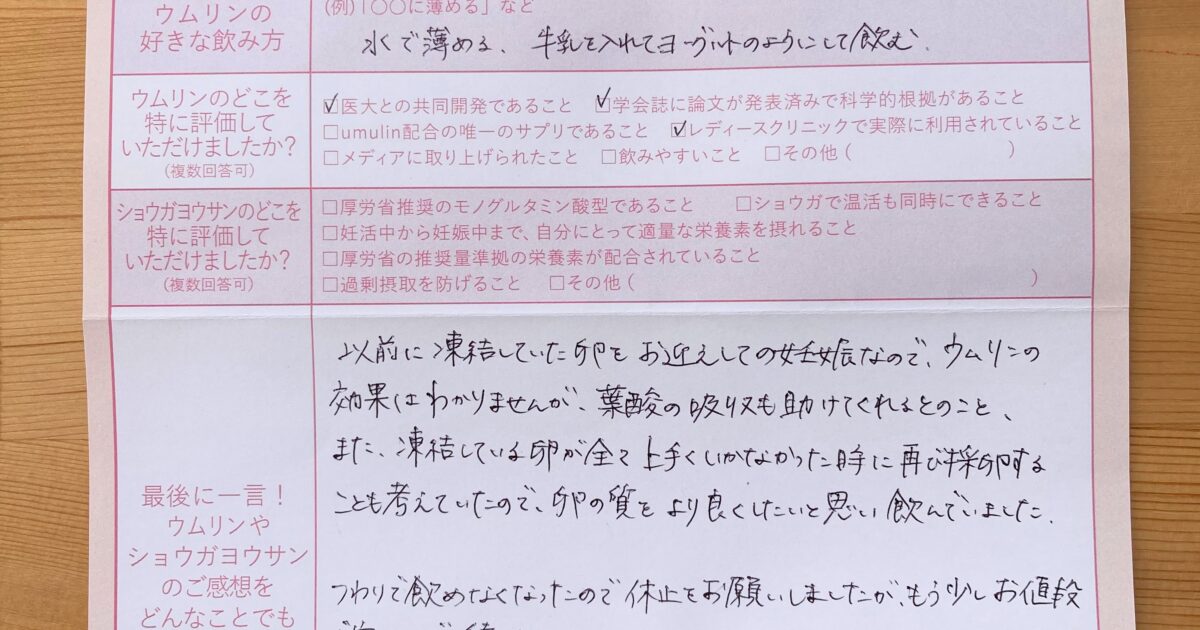 ウムリンの
好きな飲み方
(例)「〇〇に薄める」など
水で薄める、牛乳を入れてヨーグルトのようにして飲む.
ウムリンのどこを
特に評価して
いただけましたか?
(複数回答可)
☑医大との共同開発であること ☑学会誌に論文が発表済みで科学的根拠があること
□umulin配合の唯一のサプリであること ☑レディースクリニックで実際に利用されていること
□メディアに取り上げられたこと □飲みやすいこと □その他( )
ショウガヨウサンのどこを
特に評価して
いただけましたか?
(複数回答可)
□厚労省推奨のモノグルタミン酸型であること □ショウガで温活も同時にできること
□妊活中から妊娠中まで、自分にとって適量な栄養素を摂れること
□厚労省の推奨量準拠の栄養素が配合されていること
□過剰摂取を防げること □その他( )
最後に一言!
ウムリンや
ショウガヨウサン
のご感想を
どんなことでも
以前に凍結していた卵をお迎えしての妊娠なので、ウムリンの
効果はわかりませんが、葉酸の吸収も助けてくれるとのこと、
また、凍結している卵が全て上手くいかなかった時に再び採卵する
ことも考えていたので、卵の質をより良くしたいと思い飲んでいました.
つわりで飲めなくなったので休止をお願いしましたが、もう少しお値段